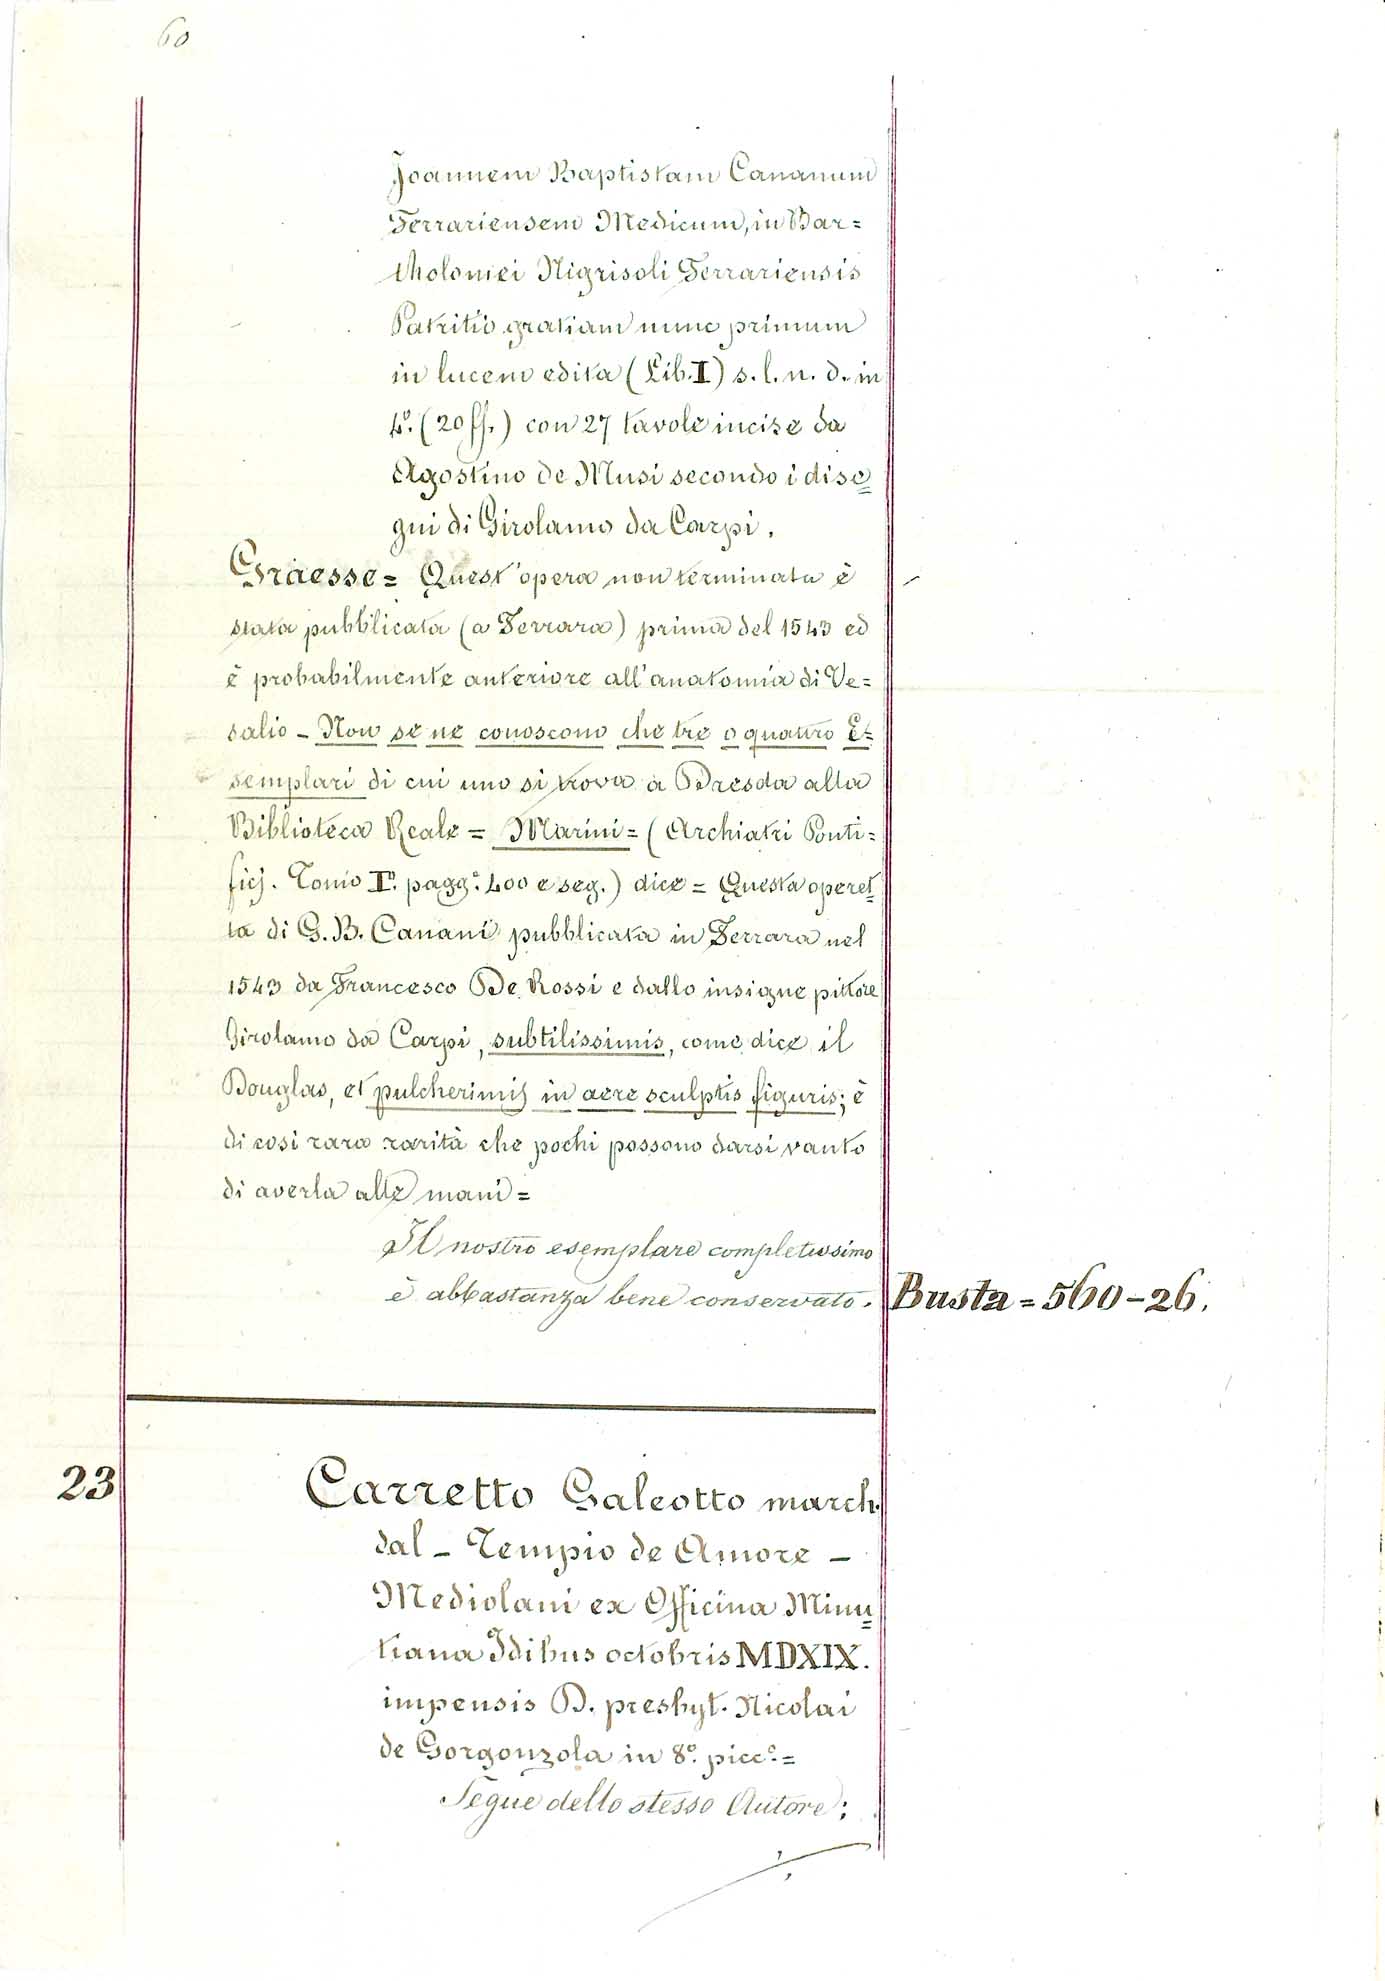 60
Joannem Baptistam Cananum
Ferrariensem Medicum, in Bar=
tholomei Nigrisoli Ferrariensis
Patritio gratiam nunc primum
in lucem edita (Lib. I) s. l. n. d. in
4.º (20 ff.) con 27 tavole incise da
Agostino de Musi secondo i dise=
gni di Girolamo da Carpi.
Graesse = Quest'opera non terminata è
stata pubblicata (a Ferrara) prima del 1543 ed
è probabilmente anteriore all'anatomia di Ve=
salio - Non se ne conoscono che tre o quattro E=
semplari di cui uno si trova a Dresda alla
Biblioteca Reale = Marini = (Archiatri Ponti=
ficj. Tomo Iº. pagg.e 400 e seg.) dice = Questa operet=
ta di G. B. Canani pubblicata in Ferrara nel
1543 da Francesco De Rossi e dallo insigne pittore
Girolamo da Carpi, subtilissimis, come dice il
Douglas, et pulcherimis in aere sculptis figuris; è
di cosi rara rarità che pochi possono darsi vanto
di averla alle mani =
Il nostro esemplare completissimo
è abbastanza bene conservato. Busta = 560-26.
23 Carretto Galeotto march.
dal - Tempio de Amore -
Mediolani ex Officina Minu=
tiana Idibus octobris MDXIX.
impensis D. presbyt. Nicolai
de Gorgonzola in 8º. picc.º =
Segue dello stesso Autore: